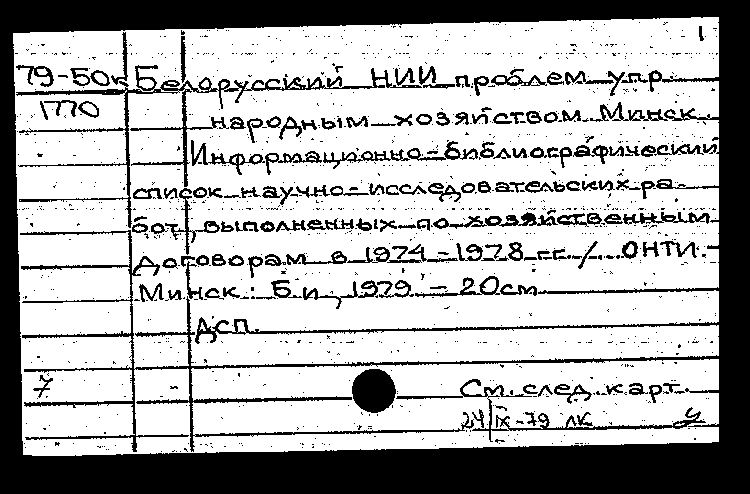 1
79-50к Белорусский НИИ проблем упр.
1770 народным хозяйством. Минск.
Информационно-библиографический
список научно-исследовательских ра-
бот, выполненных по хозяйственным
договорам в 1974-1978 гг. / ОНТИ. -
Минск: Б.и., 1979. - 20см.
ДСП.
7 См. след. карт.
24/IX-79 ЛК